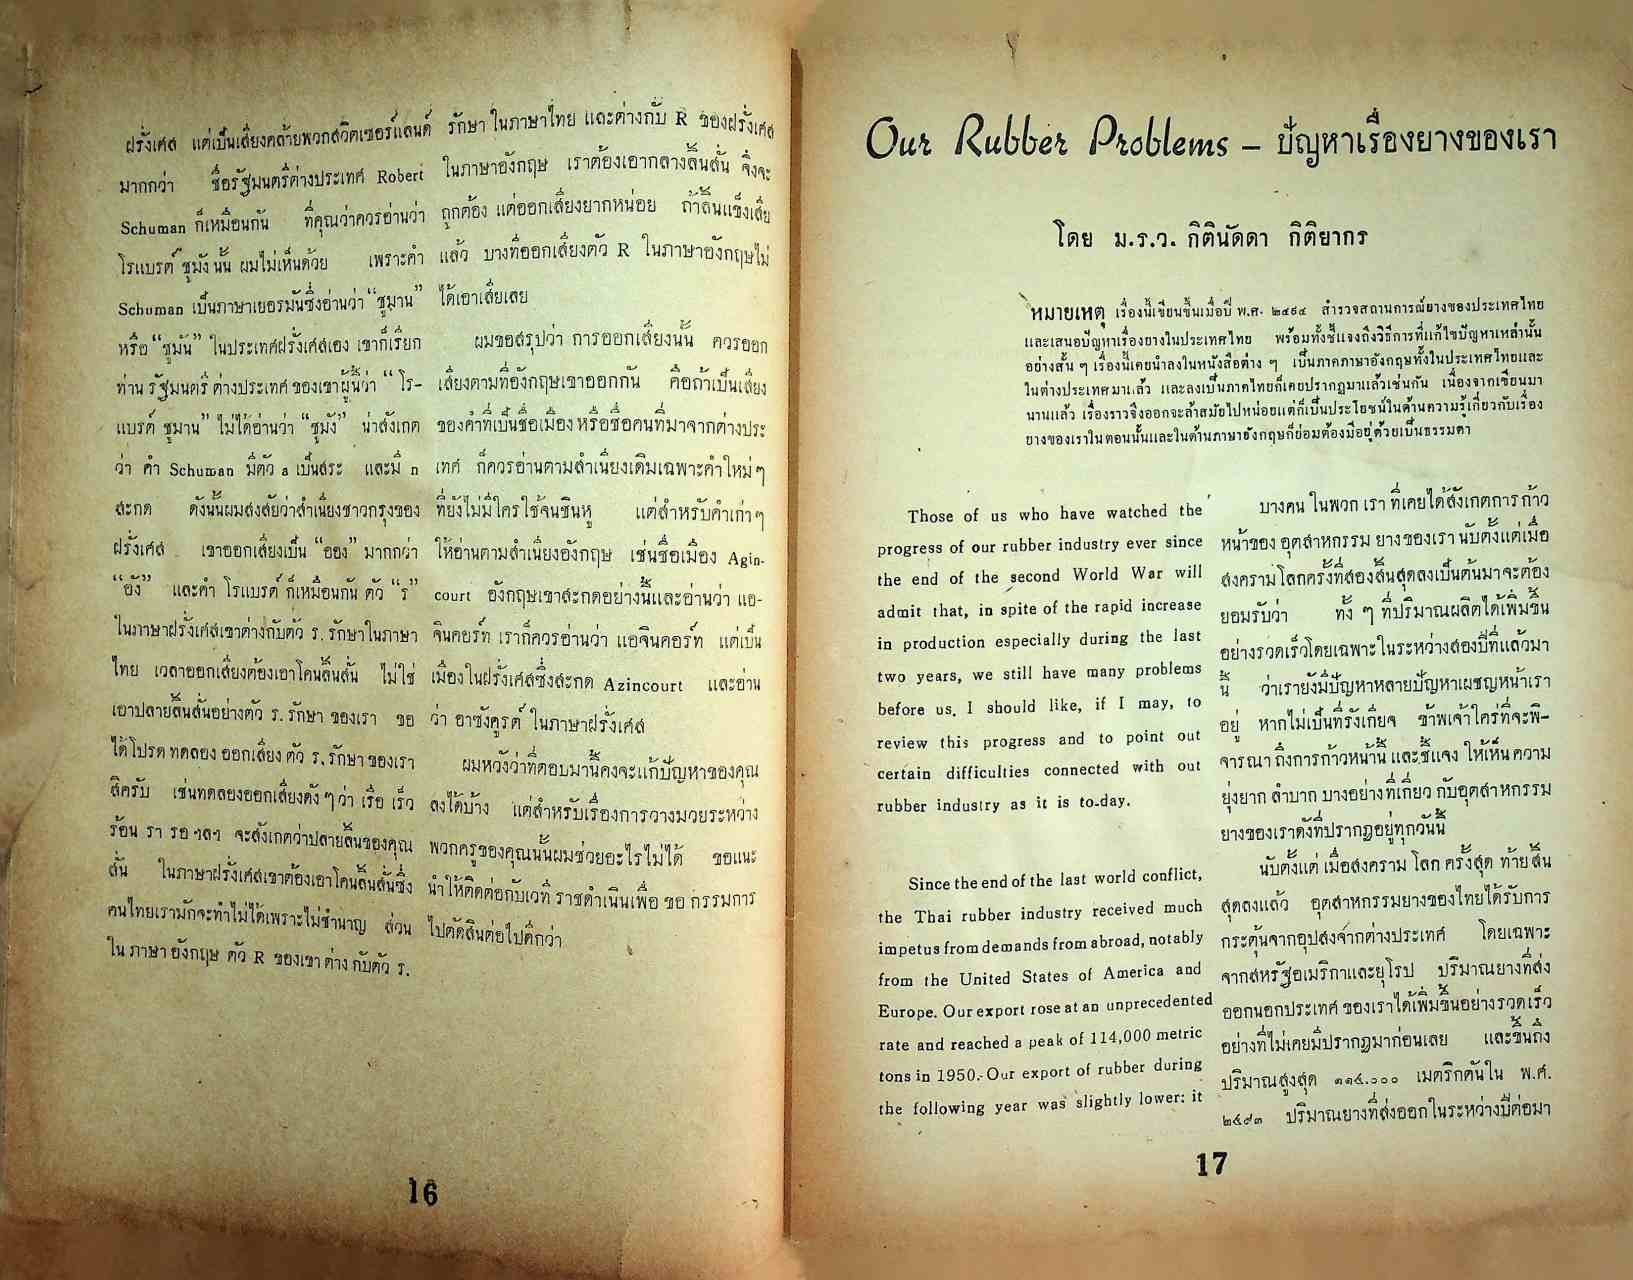 ฝรั่งเศส แต่เป็นเสียงคล้ายพวกสวิตเซอร์แลนด์
มากกว่า ชื่อรัฐมนตรีต่างประเทศ Robert
Schuman ก็เหมือนกัน ที่คุณว่าควรอ่านว่า
โรแบรต์ ชูมัง นั้น ผมไม่เห็นด้วย เพราะคำ
Schuman เป็นภาษาเยอรมันซึ่งอ่านว่า “ชูมาน”
หรือ “ชูมัน” ในประเทศฝรั่งเศสเอง เขาก็เรียก
ท่าน รัฐมนตรี ต่างประเทศ ของเขาผู้นี้ว่า “โร-
แบรต์ ชูมาน” ไม่ได้อ่านว่า “ชูมัง” น่าสังเกต
ว่า คำ Schuman มีตัว a เป็นสระ และมี n
สะกด ดังนั้นผมสงสัยว่าสำเนียงชาวกรุงของ
ฝรั่งเศส เขาออกเสียงเป็น “ออง” มากกว่า
“อัง” และคำ โรแบรต์ ก็เหมือนกัน ตัว “ร”
ในภาษาฝรั่งเศสเขาต่างกับตัว ร. รักษาในภาษา
ไทย เวลาออกเสียงต้องเอาโคนลิ้นสั่น ไม่ใช่
เอาปลายลิ้นสั่นอย่างตัว ร. รักษา ของเรา ขอ
ได้โปรด ทดลอง ออกเสียง ตัว ร. รักษา ของเรา
สิครับ เช่นทดลองออกเสียงดัง ๆ ว่า เรือ เร็ว
ร้อน รา รอ ฯลฯ จะสังเกตว่าปลายลิ้นของคุณ
สั่น ในภาษาฝรั่งเศสเขาต้องเอาโคนลิ้นสั่นซึ่ง
คนไทยเรามักจะทำไม่ได้เพราะไม่ชำนาญ ส่วน
ใน ภาษา อังกฤษ ตัว R ของเขา ต่าง กับตัว ร.
รักษา ในภาษาไทย และต่างกับ R ของฝรั่งเศส
ในภาษาอังกฤษ เราต้องเอากลางลิ้นสั่น จึงจะ
ถูกต้อง แต่ออกเสียงยากหน่อย ถ้าลิ้นแข็งเสีย
แล้ว บางทีออกเสียงตัว R ในภาษาอังกฤษไม่
ได้เอาเสียเลย
ผมขอสรุปว่า การออกเสียงนั้น ควรออก
เสียงตามที่อังกฤษเขาออกกัน คือถ้าเป็นเสียง
ของคำที่เป็นชื่อเมือง หรือชื่อคนที่มาจากต่างประ
เทศ ก็ควรอ่านตามสำเนียงเดิมเฉพาะคำใหม่ ๆ
ที่ยังไม่มีใครใช้จนชินหู แต่สำหรับคำเก่า ๆ
ให้อ่านตามสำเนียงอังกฤษ เช่นชื่อเมือง Agin-
court อังกฤษเขาสะกดอย่างนี้และอ่านว่า แอ-
จินคอร์ท เราก็ควรอ่านว่า แอจินคอร์ท แต่เป็น
เมืองในฝรั่งเศสซึ่งสะกด Azincourt และอ่าน
ว่า อาซังคูรต์ ในภาษาฝรั่งเศส
ผมหวังว่าที่ตอบมานี้คงจะแก้ปัญหาของคุณ
ลงได้บ้าง แต่สำหรับเรื่องการวางมวยระหว่าง
พวกครูของคุณนั้นผมช่วยอะไรไม่ได้ ขอแนะ
นำให้ติดต่อกับเวที ราชดำเนินเพื่อ ขอ กรรมการ
ไปตัดสินต่อไปดีกว่า
16
Our Rubber Problems – ปัญหาเรื่องยางของเรา
โดย ม.ร.ว. กิตินัดดา กิติยากร
หมายเหตุ เรื่องนี้เขียนขึ้นเมื่อปี พ.ศ. ๒๔๙๔ สำรวจสถานการณ์ยางของประเทศไทย
และเสนอปัญหาเรื่องยางในประเทศไทย พร้อมทั้งชี้แจงถึงวิธีการที่แก้ไขปัญหาเหล่านั้น
อย่างสั้น ๆ เรื่องนี้เคยนำลงในหนังสือต่าง ๆ เป็นภาคภาษาอังกฤษทั้งในประเทศไทยและ
ในต่างประเทศมาแล้ว และลงเป็นภาคไทยก็เคยปรากฏมาแล้วเช่นกัน เนื่องจากเขียนมา
นานแล้ว เรื่องราวจึงออกจะล้าสมัยไปหน่อยแต่ก็เป็นประโยชน์ในด้านความรู้เกี่ยวกับเรื่อง
ยางของเราในตอนนั้นและในด้านภาษาอังกฤษก็ย่อมต้องมีอยู่ด้วยเป็นธรรมดา
Those of us who have watched the
progress of our rubber industry ever since
the end of the second World War will
admit that, in spite of the rapid increase
in production especially during the last
two years, we still have many problems
before us. I should like, if I may, to
review this progress and to point out
certain difficulties connected with out
rubber industry as it is to-day.
Since the end of the last world conflict,
the Thai rubber industry received much
impetus from demands from abroad, notably
from the United States of America and
Europe. Our export rose at an unprecedented
rate and reached a peak of 114,000 metric
tons in 1950. Our export of rubber during
the following year was slightly lower: it
บางคน ในพวก เรา ที่เคยได้สังเกตการ ก้าว
หน้าของ อุตสาหกรรม ยางของเรา นับตั้งแต่เมื่อ
สงครามโลกครั้งที่สองสิ้นสุดลงเป็นต้นมาจะต้อง
ยอมรับว่า ทั้ง ๆ ที่ปริมาณผลิตได้เพิ่มขึ้น
อย่างรวดเร็วโดยเฉพาะในระหว่างสองปีที่แล้วมา
นี้ ว่าเรายังมีปัญหาหลายปัญหาเผชิญหน้าเรา
อยู่ หากไม่เป็นที่รังเกียจ ข้าพเจ้าใคร่ที่จะพิ-
จารณา ถึงการก้าวหน้านี้ และชี้แจง ให้เห็น ความ
ยุ่งยาก ลำบาก บางอย่าง ที่เกี่ยว กับอุตสาหกรรม
ยางของเราดังที่ปรากฏอยู่ทุกวันนี้
นับตั้งแต่ เมื่อสงคราม โลก ครั้งสุด ท้าย สิ้น
สุดลงแล้ว อุตสาหกรรมยางของไทยได้รับการ
กระตุ้นจากอุปสงจากต่างประเทศ โดยเฉพาะ
จากสหรัฐอเมริกาและยุโรป ปริมาณยางที่ส่ง
ออกนอกประเทศ ของเราได้เพิ่มขึ้นอย่างรวดเร็ว
อย่างที่ไม่เคยมีปรากฏมาก่อนเลย และขึ้นถึง
ปริมาณสูงสุด ๑๑๔.๐๐๐ เมตริกตันใน พ.ศ.
๒๔๙๓ ปริมาณยางที่ส่งออกในระหว่างปีต่อมา
17